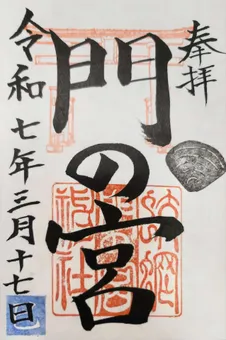 奉拝
門の宮
令和七年三月十七日